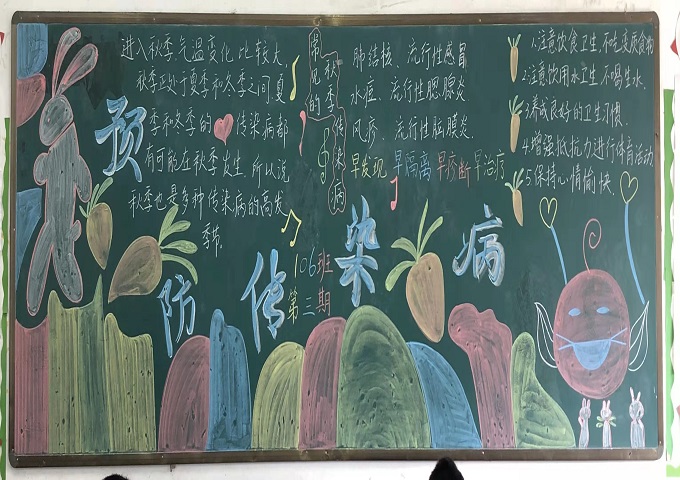 进入秋季,气温变化比较大,
秋季正处于夏季和冬季之间,夏
季和冬季的 传染病都
有可能在秋季发生,所以说
秋季也是多种传染病的高发
季节.
秋季
常见的
传染病
肺结核、流行性感冒
水痘、流行性腮腺炎
风疹、流行性脑膜炎
早发现 早隔离 早诊断 早治疗
1.注意饮食卫生,不吃变质食物
2.注意饮用水卫生,不喝生水.
3.养成良好的卫生习惯.
4.增强抵抗力进行体育活动
5.保持心情愉快.
预防传染病
106班
第三期